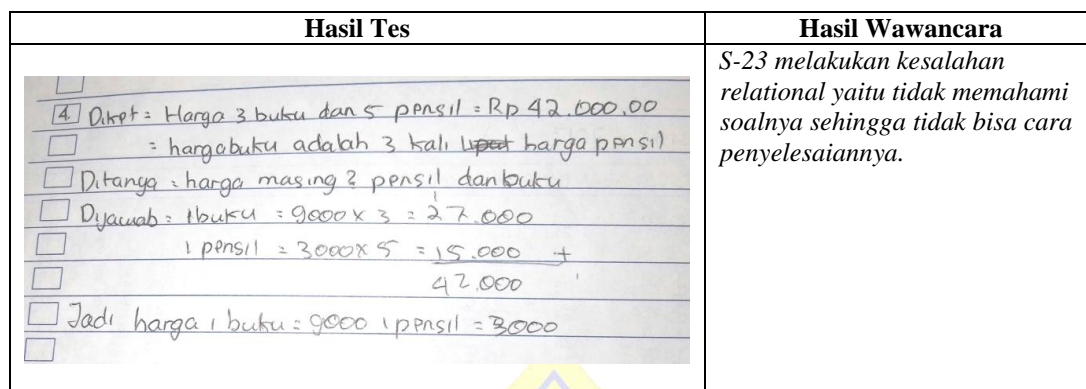 Hasil Tes
Hasil Wawancara
4 Diket = Harga 3 buku dan 5 pensil = Rp 42.000,00
= harga buku adalah 3 kali harga pensil
Ditanya = harga masing2 pensil dan buku
Dijawab = 1 buku = 9000 x 3 = 27.000
1 pensil = 3000 x 5 = 15.000 +
42.000
Jadi harga 1 buku = 9000 1 pensil = 3000
S-23 melakukan kesalahan
relational yaitu tidak memahami
soalnya sehingga tidak bisa cara
penyelesaiannya.